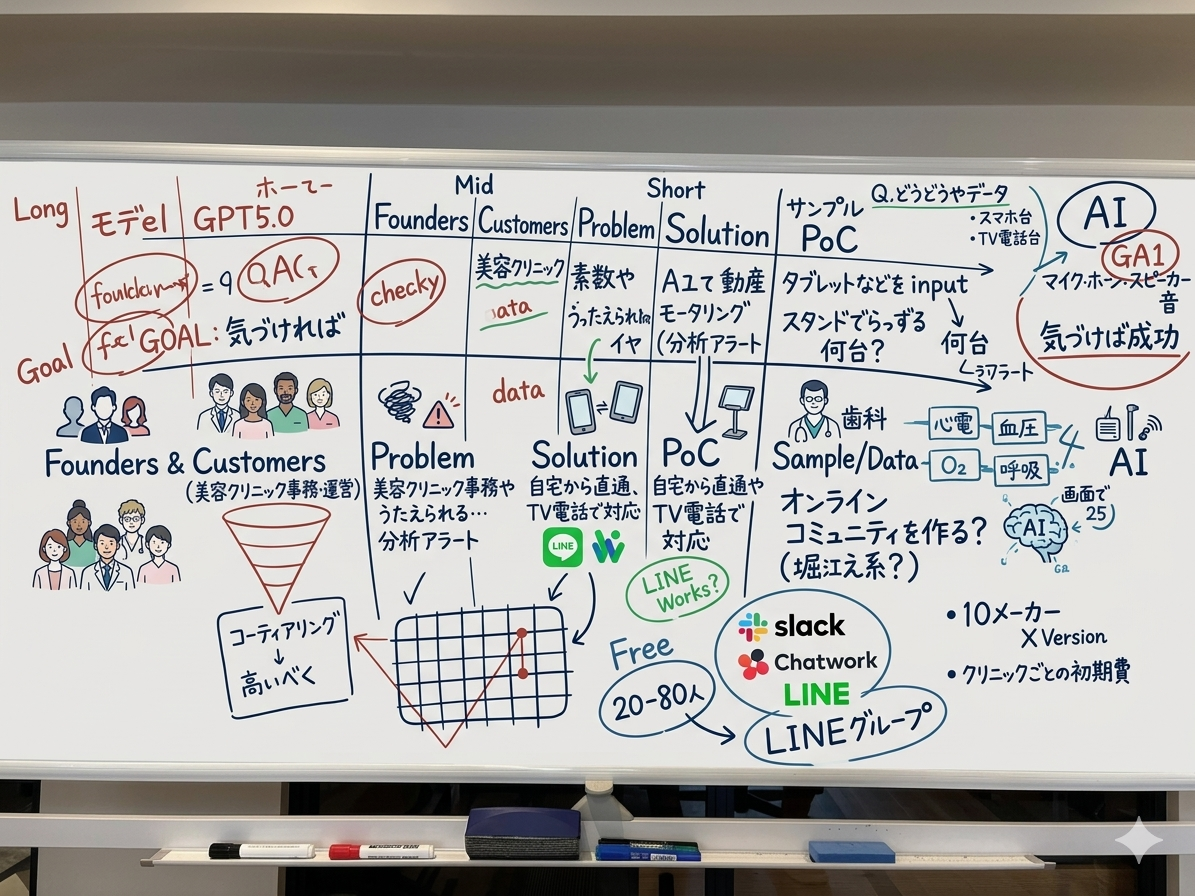 Long
モデel
ホーてー
GPT5.0
Mid
Founders
Customers
Problem
Short
Solution
サンプル
PoC
Q.どうどうやデータ
・スマホ台
・TV電話台
AI
GA1
マイク・ホーン・スピーカー
音
気づけば成功
= 9
checky
美容クリニック
ata
素数や
うったえられ
イヤ
Aユて動産
モータリング
(分析アラート
タブレットなどを input
スタンドでらっずる
何台?
何台
Goal
GOAL: 気づければ
data
Founders & Customers
(美容クリニック事務・運営)
Problem
美容クリニック事務や
うたえられる…
分析アラート
Solution
自宅から直通、
TV電話で対応
LINE
PoC
自宅から直通や
TV電話で
対応
LINE
Works?
歯科
Sample/Data
心電
血圧
O₂
呼吸
AI
オンライン
コミュニティを作る?
(堀江え系?)
AI
画面で
25)
コーティアリング
↓
高いべく
Free
20-80人
slack
Chatwork
LINE
LINEグループ
・10メーカー
X Version
・クリニックごとの初期費